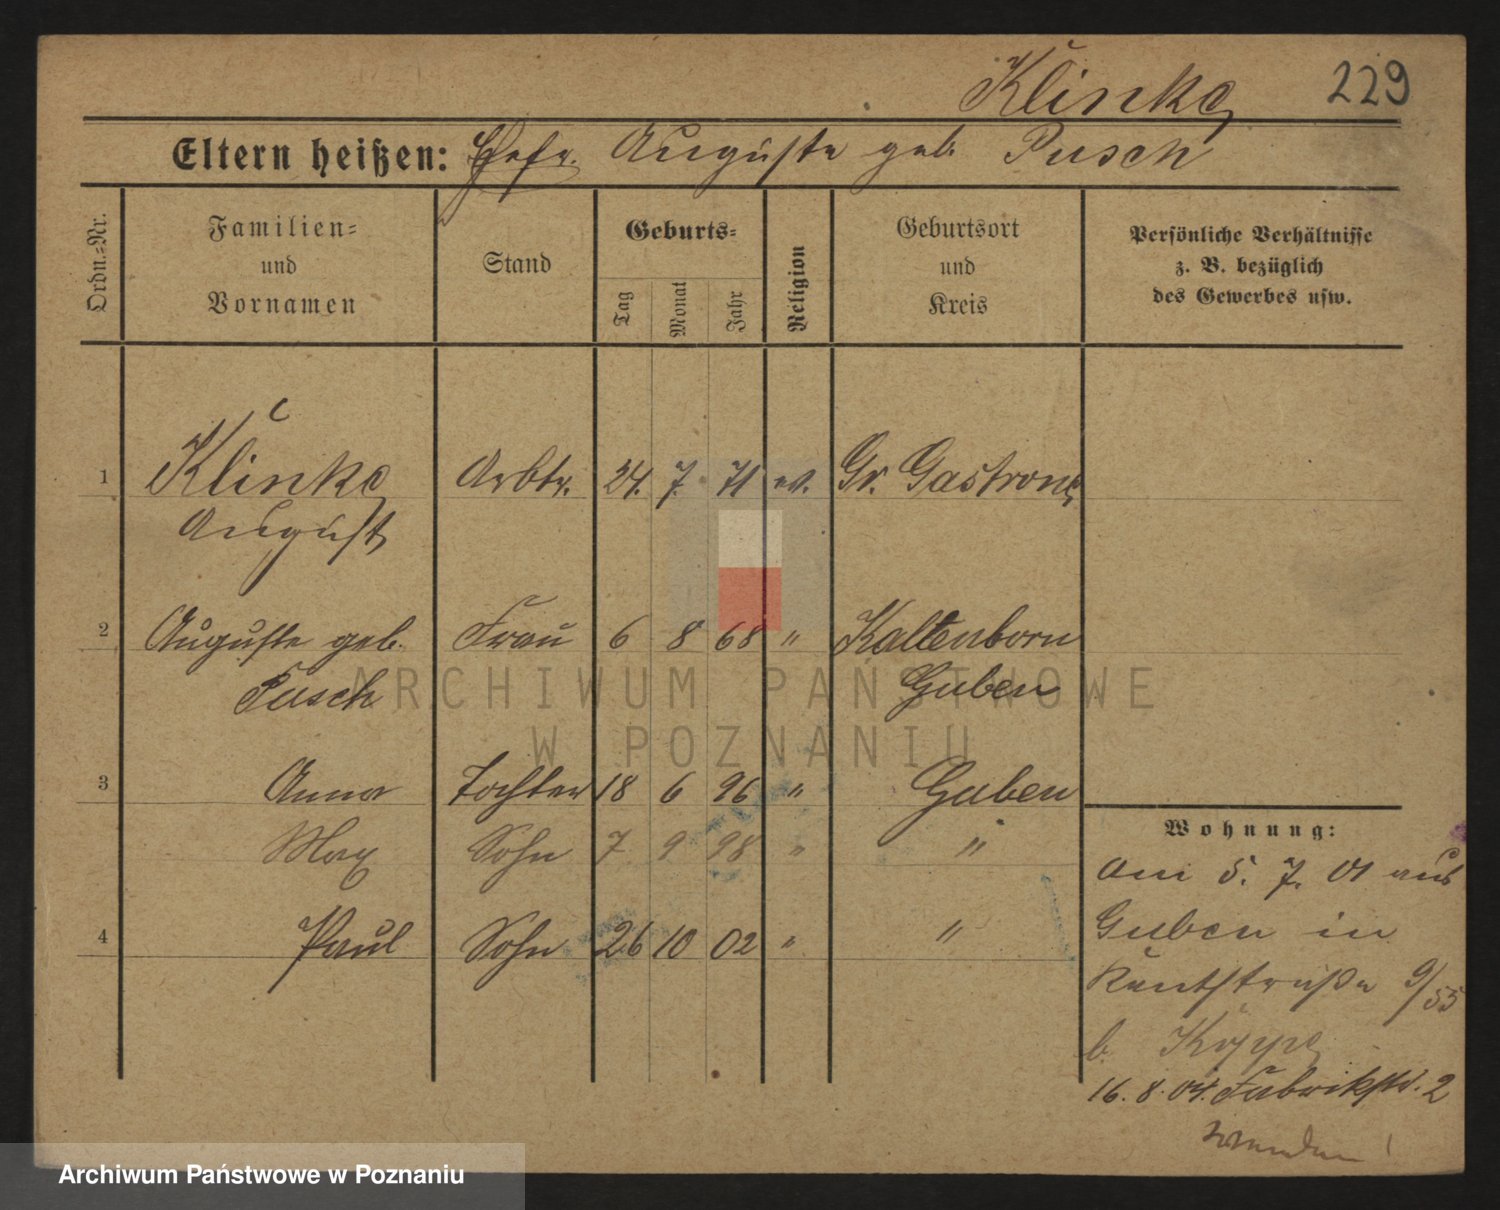 Klinke 229
Eltern heißen: Ehefr. Auguste geb. Pusch
Ordn.=Nr.
Familien=
und
Vornamen
Stand
Geburts=
Tag Monat Jahr
Religion
Geburtsort
und
Kreis
Persönliche Verhältnisse
z. B. bezüglich
des Gewerbes usw.
1 Klinke Arbtr. 24. 7. 71 ev. Gr. Gastrose
August
2 Auguste geb. Frau 6 8 68 " Kaltenborn
Pusch Guben
3 Anna Tochter 18 6 96 " Guben
Max Sohn 7 9 98 " "
4 Paul Sohn 26 10 02 " "
Wohnung:
Am 5. 7. 01 aus
Guben in
9/55
b.
16. 8. 04. Fabrikstr. 2
wenden!
ARCHIWUM PAŃSTWOWE
W POZNANIU
Archiwum Państwowe w Poznaniu